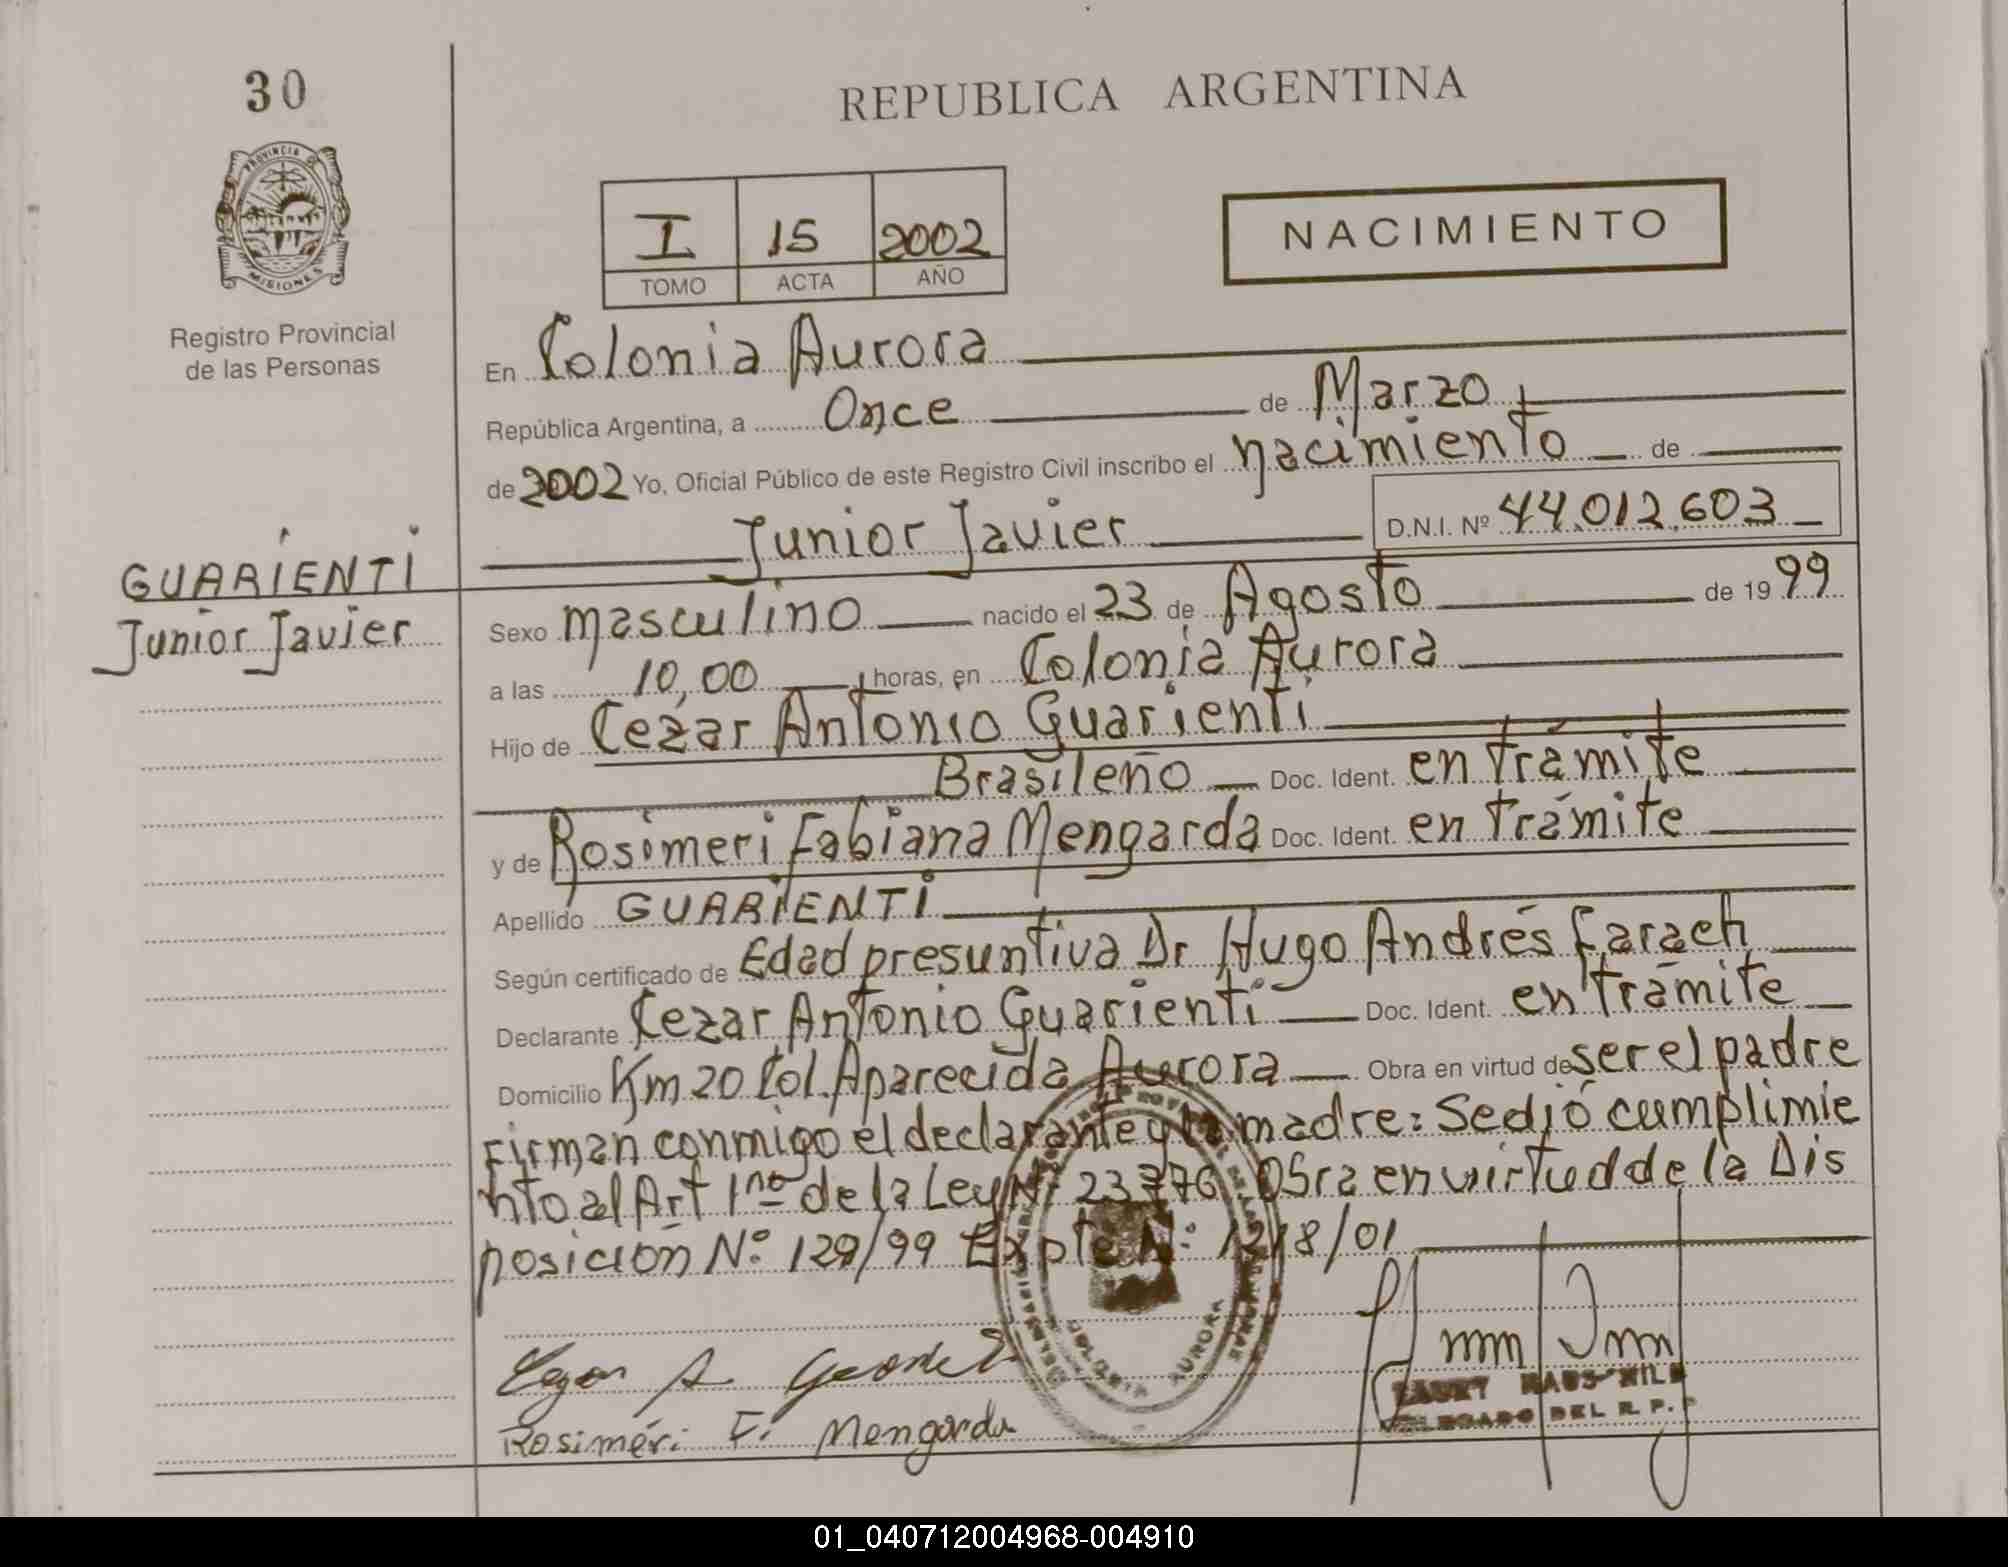 30
REPUBLICA ARGENTINA
PROVINCIA DE
MISIONES
I 15 2002
TOMO ACTA AÑO
NACIMIENTO
Registro Provincial
de las Personas
En Colonia Aurora
República Argentina, a Once de Marzo
de 2002 Yo, Oficial Público de este Registro Civil inscribo el nacimiento de
Junior Javier D.N.I. Nº 44.012.603
GUARIENTI
Junior Javier
Sexo masculino nacido el 23 de Agosto de 1999
a las 10,00 horas, en Colonia Aurora
Hijo de Cezar Antonio Guarienti
Brasileño Doc. Ident. en trámite
y de Rosimeri Fabiana Mengarda Doc. Ident. en trámite
Apellido GUARIENTI
Según certificado de Edad presuntiva Dr Hugo Andrés Farach
Declarante Cezar Antonio Guarienti Doc. Ident. en trámite
Domicilio Km 20 Col. Aparecida Aurora Obra en virtud de ser el padre
Firman conmigo el declarante y la madre: Se dió cumplimie
nto al Art 1ro de la Ley Nº 23776 Obra en virtud de la Dis
posición Nº: 129/99 Expte Nº: 1218/01
COLONIA AURORA
Rosiméri F. Mengarda
DELEGADO DEL R. P.
01_040712004968-004910